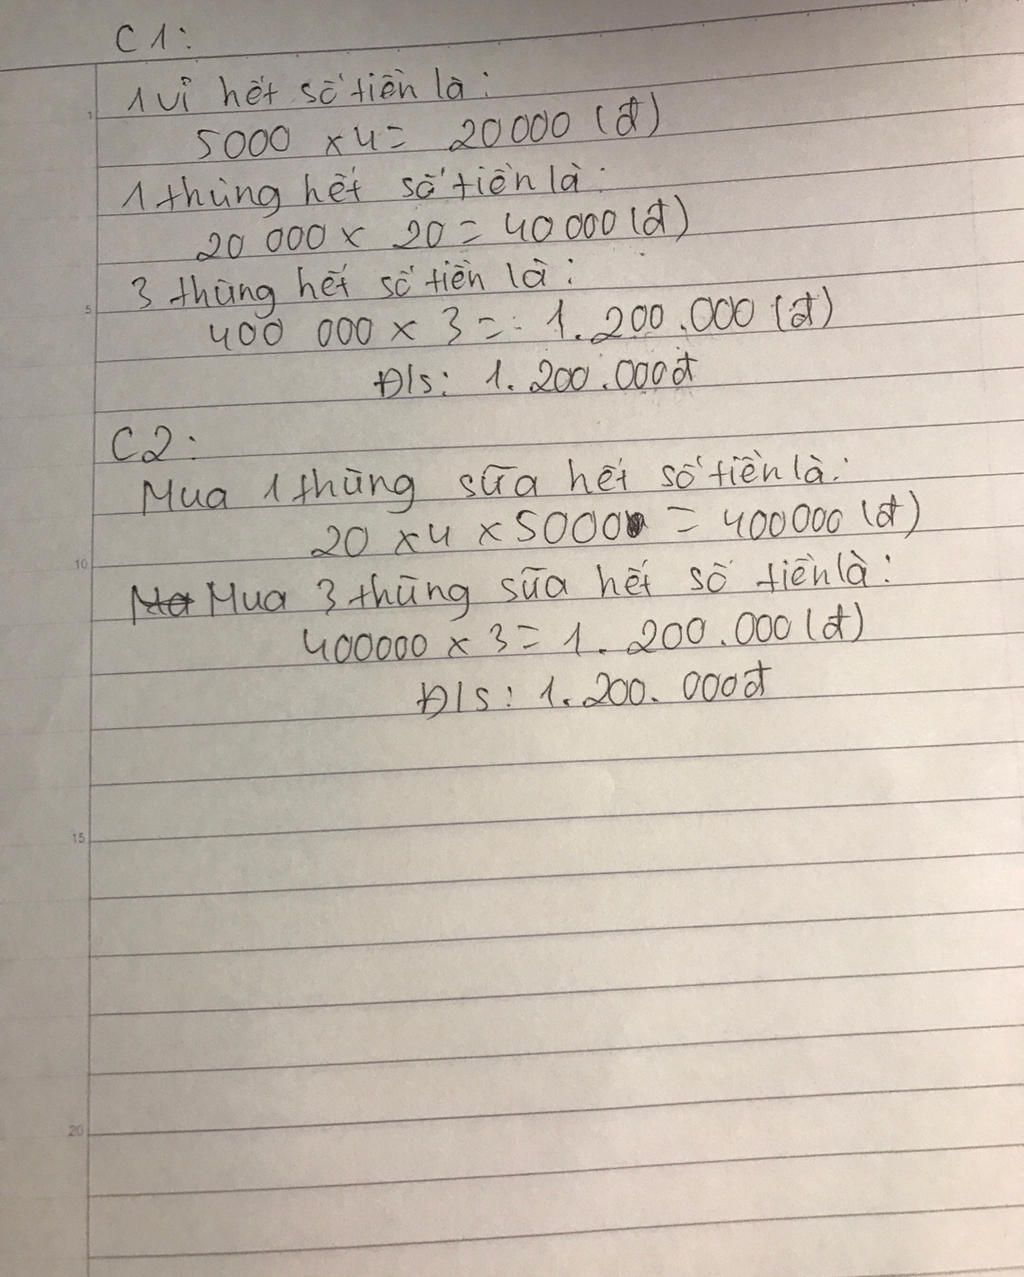 C1:
1 vỉ hết số tiền là:
5000 x 4 = 20000 (đ)
1 thùng hết số tiền là:
20 000 x 20 = 40 000 (đ)
3 thùng hết số tiền là:
400 000 x 3 = 1.200.000 (đ)
Đ/s: 1.200.000đ
C2:
Mua 1 thùng sữa hết số tiền là:
20 x 4 x 5000 = 400000 (đ)
Mua 3 thùng sữa hết số tiền là:
400000 x 3 = 1.200.000 (đ)
Đ/s: 1.200.000đ
1
5
10
15
20